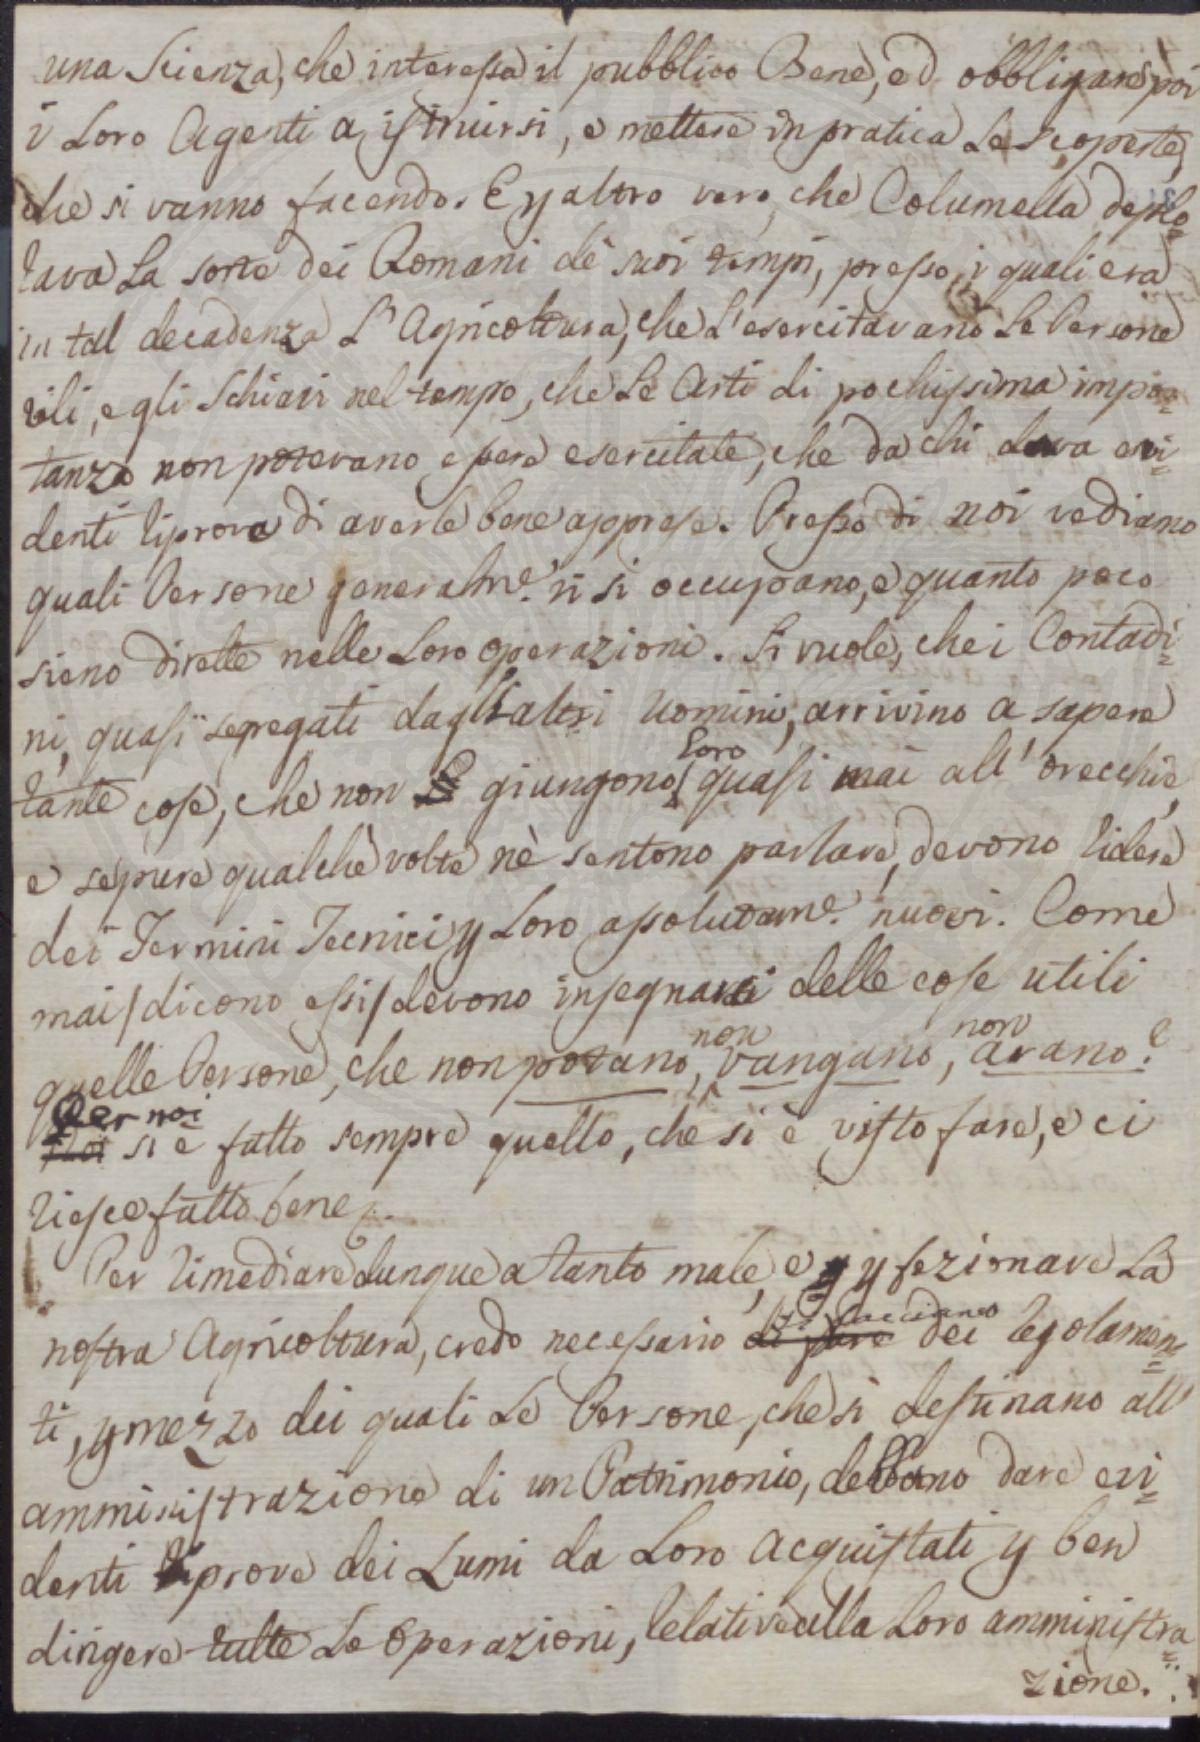 una Scienza, che interessa il pubblico Bene, ed obbligare poi
i Loro Agenti a istruirsi, e mettere in pratica Le Scoperte,
che si vanno facendo. E p altro vero, che Columella deplo=
rava La sorte dei Romani de' suoi tempi, presso i quali era
in tal decadenza L'Agricoltura, che L'esercitavano Le Persone
vili, e gli Schiavi nel tempo, che Le Arti di pochissima impor=
tanza non potevano essere esercitate, che da chi dava evi=
denti riprova di averle bene apprese. Presso di noi vediamo
quali Persone generalme. vi si occupano, e quanto poco
sieno dirette nelle Loro operazioni. Si vuole, che i Contadi=
ni, quasi segregati dagli altri Uomini, arrivino a sapere
tante cose, che non giungono Loro quasi mai all'orecchie,
e sepure qualche volta nè sentono parlare, devono ridere
dei Termini Tecnici p Loro assolutame. nuovi. Come
mai / dicono essi / devono insegnarci delle cose utili
quelle Persone, che non potano, non vangano, non arano?
Per noi si è fatto sempre quello, che si è visto fare, e ci
riesce fatto bene.
Per rimediare dunque a tanto male, e p pfezionare La
nostra Agricoltura, credo necessario si facciano dei regolamen=
ti, p mezzo dei quali Le Persone, che si destinano all'
amministrazione di un Patrimonio, debbano dare evi=
denti riprove dei Lumi da Loro acquistati p ben
dirigere tutte Le Operazioni, relative alla Loro amministra=
zione.